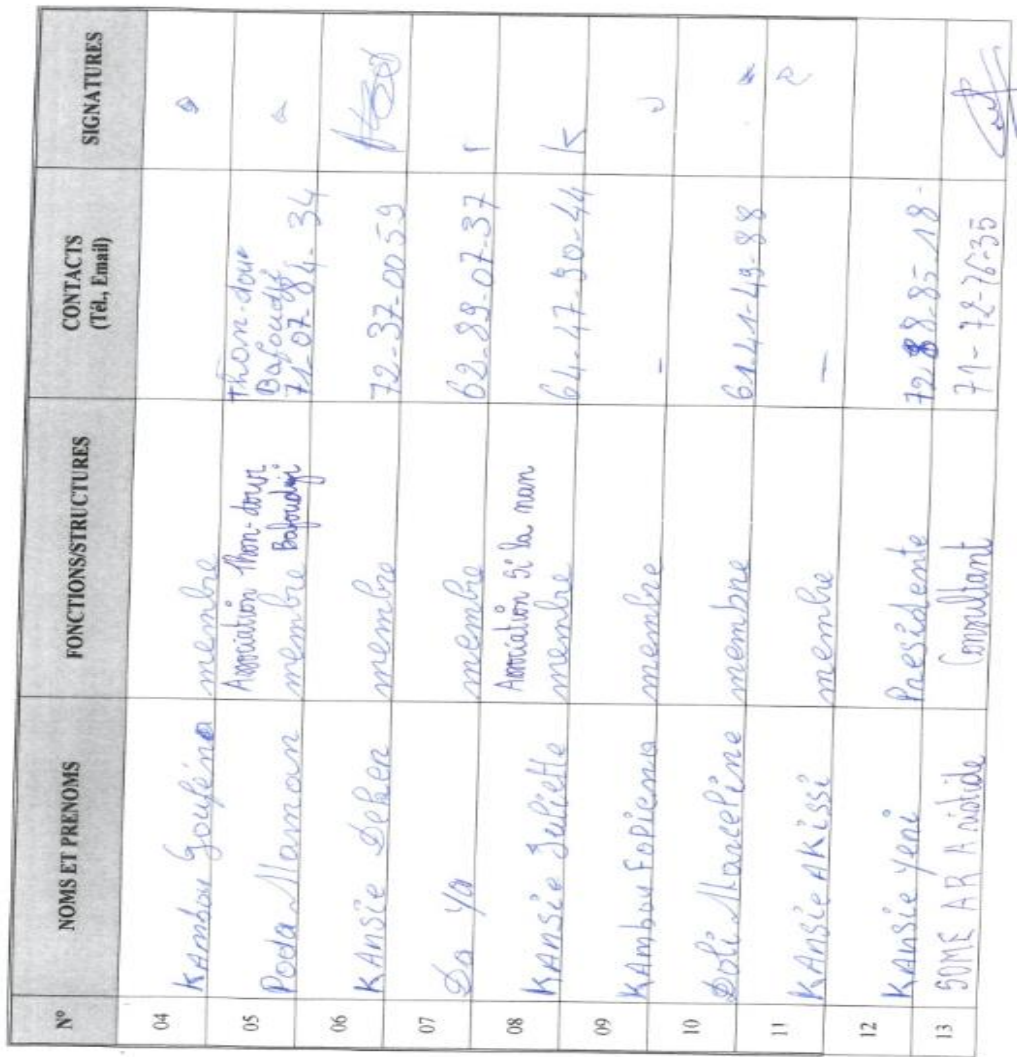 N° NOMS ET PRENOMS FONCTIONS/STRUCTURES CONTACTS (Tél., Email) SIGNATURES
04 KAmbou Gouféna membre
05 Poda Maman Association Thon-dour Bafoudji membre Thon-dour Bafoudji 71-07-84-34
06 KAnsie Dehen membre 72-37-00 59
07 Da Ya membre 62-89-07-37
08 KAnsie Juliette Association Si la man membre 64-47-90-44
09 KAmbou Fopiema membre -
10 Doli Marceline membre 61 41-49-88
11 KAnsie AKissi membre -
12 KAnsie Yeri Presidente 72 88-85-18-
13 SOME AR Aristide Consultant 71-72-76-35